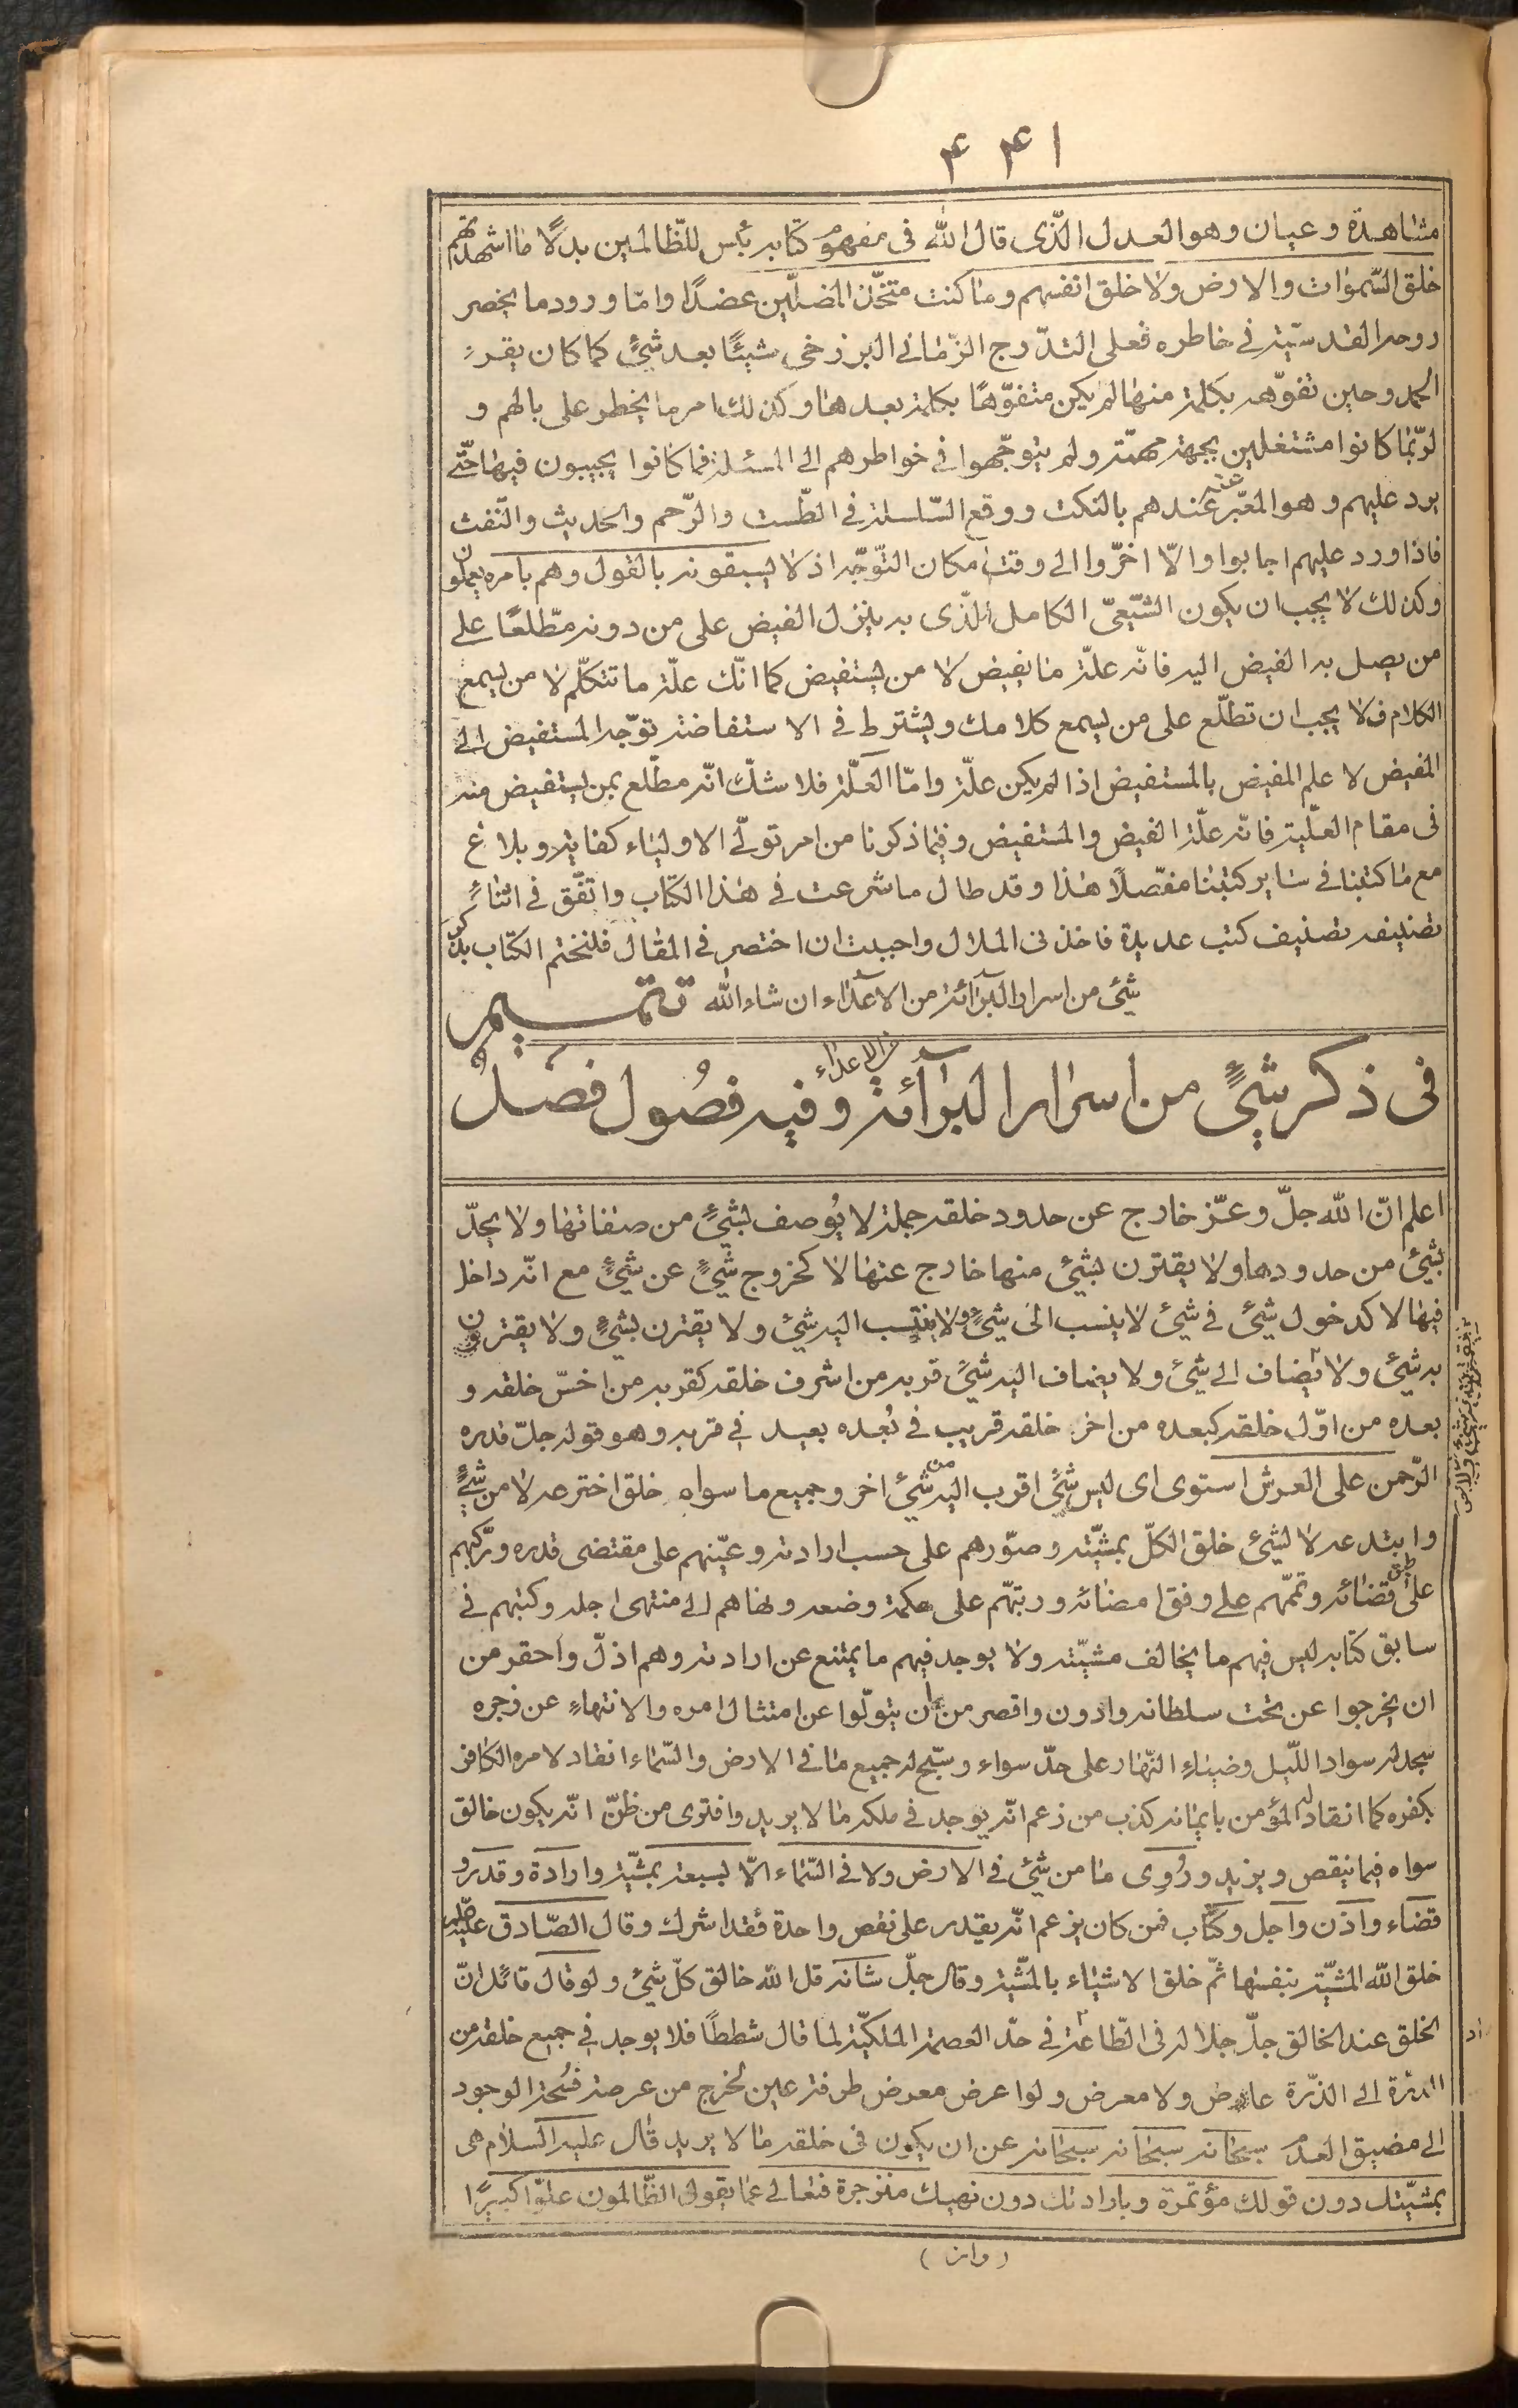 ۴۴۱
مشاهدة و عيان و هو العدل الّذى قال اللّه فى مفهوم كتابه بئس للظّالمين بدلًا ما اشهدتهم
خلق السّموات و الارض و لا خلق انفسهم و ما كنت متخّذ المضلّين عضدًا و امّا ورود ما يخصر
روحه القدسيّة فى خاطره فعلى التدّرج الزّمانى البرزخى شيئًا بعد شئٍ كما كان يقرء
الحمد و حين تفوّهه بكلمة منها لم يكن متفوّهًا بكلمة بعدها و كذلك امر ما يخطر على بالهم و
لربّما كانوا مشتغلين بجهة مهمّة و لم يتوجّهوا فى خواطرهم الى المسئلة فما كانوا يجيبون فيها حتّى
يرد عليهم و هو المعبّر عنه عندهم بالنكت و وقع السّلسلة فى الطّست و الرّجم و الحديث و النّفث
فاذا ورد عليهم اجابوا و الّا اخّروا الى وقت امكان التوّجه اذ لا يسبقونه بالقول و هم بامره يعملون
و كذلك لا يجب ان يكون الشّيعىّ الكامل الّذى به ينزل الفيض على من دونه مطّلعًا على
من يصل به الفيض اليه فانّه علّة ما يفيض لا من يستفيض كما انّك علّة ما تتكلّم لا من يسمع
الكلام فلا يجب ان تطلّع على من يسمع كلامك و يشترط فى الاستفاضة توّجه المستفيض الى
المفيض لا علم المفيض بالمستفيض اذا لم يكن علّة و امّا العلّة فلا شكّ انّه مطّلع بمن يستفيض منه
فى مقام العلّية فانّه علّة الفيض و المستفيض و فيما ذكرنا من امر تولّى الاولياء كفاية و بلاغ
مع ما كتبنا فى ساير كتبنا مفصّلًا هذا و قد طال ما شرعت فى هذا الكتاب و اتفّق فى اثناء
تصنيفه تصنيف كتب عديدة فاخذنى الملال و احببت ان اختصر فى المقال فلنختم الكتاب بذكر
شئ من اسرار البرآئة من الاعدآء ان شاء اللّه تتميم
فى ذكر شئٍ من اسرار البرآئة من الاعداء و فيه فصُول فصل
اعلم انّ اللّه جلّ و عزّ خارج عن حدود خلقه جملة لا يُوصف بشئٍ من صفاتها و لا يحدّ
بشئ من حدودها و لا يقترن بشئ منها خارج عنها لا كخروج شئٍ عن شئٍ مع انّه داخل
فيها لا كدخول شئ فى شئ لا ينسب الى شئٍ و لا ينتسب اليه شئ و لا يقترن بشئٍ و لا يقترن
به شئ و لا يضاف الى شئ و لا يضاف اليه شئ قربه من اشرف خلقه كقربه من اخسّ خلقه و
بعده من اوّل خلقه كبعده من اخر خلقه قريب فى بُعده بعيد فى قربه و هو قوله جلّ قدره
الرّحمن على العرش استوى اى ليس شئ اقرب اليه من شئ اخر و جميع ما سواه خلق اخترعه لا من شئٍ
و ابتدعه لا لشئ خلق الكلّ بمشيّته و صوّرهم على حسب ارادته و عيّنهم على مقتضى قدره و ركّبهم
على طبق قضائه و تمّمهم على وفق امضائه و رتبّهم على حكمة وضعه و نماهم الى منتهى اجله و كتبهم فى
سابق كتابه ليس فيهم ما يخالف مشيّته و لا يوجد فيهم ما يمتنع عن ارادته و هم اذلّ و احقر من
ان يخرجوا عن تحت سلطانه و ادون و اقصر من ان يتولّوا عن امتثال امره و الانتهاء عن زجره
سجد له سواد اللّيل و ضياء النّهار على حدّ سواء و سبّح له جميع ما فى الارض و السّماء انقاد لامره الكافر
بكفره كما انقاد له المؤمن بايمانه كذب من زعم انّه يوجد فى ملكه ما لا يريد و افترى من ظنّ انّه يكون خالق
سواه فيما ينقص و يزيد و رُوى ما من شئ فى الارض و لا فى السّماء الّا بسبعة بمشيّة و ارادة و قدر و
قضاء و اذن و اجل و كتاب فمن كان يزعم انّه يقدر على نقص واحدة فقد اشرك و قال الصّادق عليه
خلق اللّه المشيّة بنفسها ثمّ خلق الاشياء بالمشّية و قال جلّ شانه قل اللّه خالق كلّ شئ و لو قال قائل انّ
الخلق عند الخالق جلّ جلاله فى الطّاعة فى حدّ العصمة الملكيّة لما قال شططًا فلا يوجد فى جميع خلقه من
الدرّة الى الذرّة عارض و لا معرض و لو اعرض معرض طرفة عين لخرج من عرصة فُسحة الوجود
الى مضيق العدم سبحانه سبحانه سبحانه عن ان يكون فى خلقه ما لا يريد قال عليه السلام هى
بمشيّتك دون قولك مؤتمرة و بارادتك دون نهيك منزجرة فتعالى عما يقول الظّالمون علوّا كبيرًا